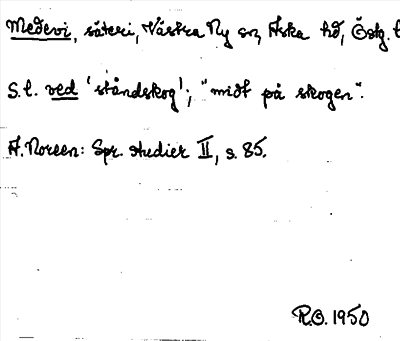 Medevi, säteri, Västra Ny sn, Aska hd, Östg. l
S.l. ved 'ståndskog'; "midt på skogen".
A. Noreen: Spr. studier II, s. 85.
R.O. 1950